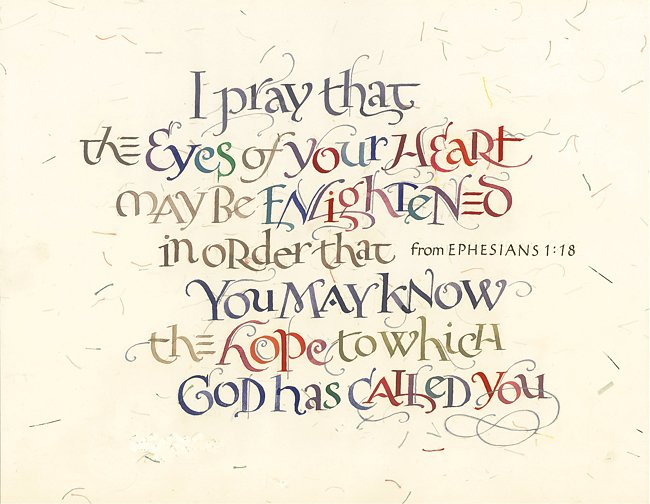 I pray that
the Eyes of your Heart
may Be Enlightened
in order that
from EPHESIANS 1:18
You May know
the hope to which
God has called you